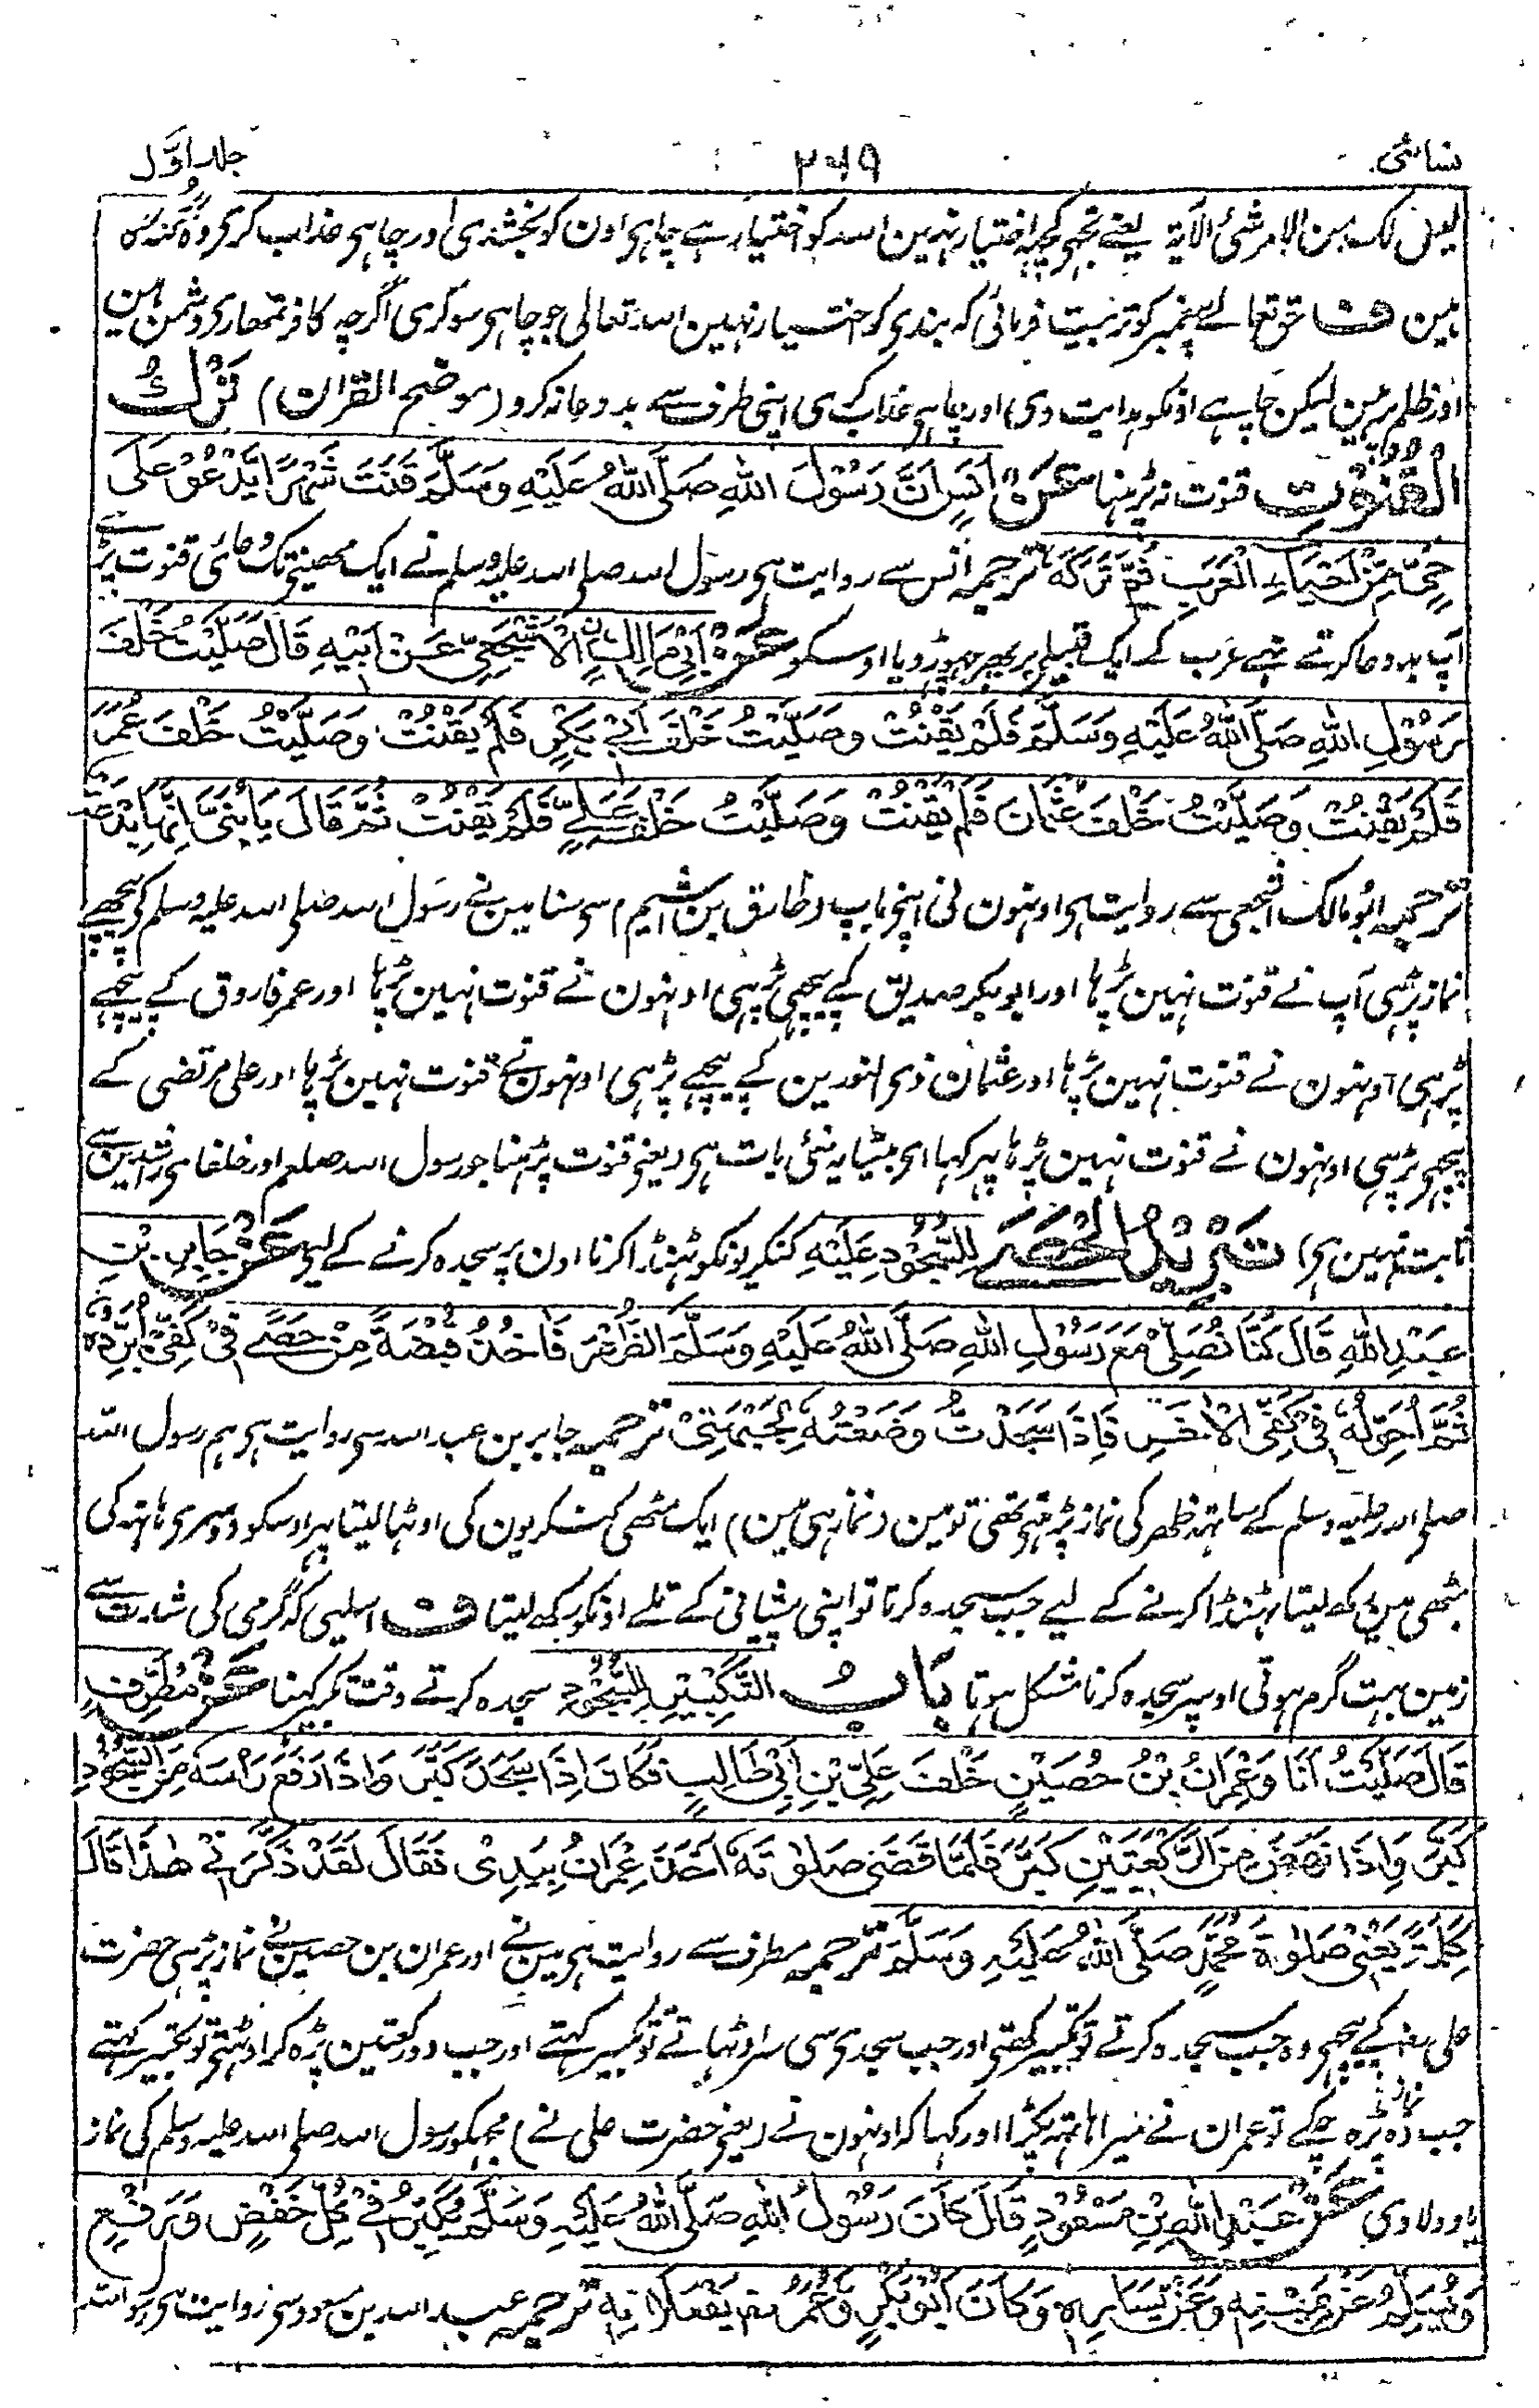 نسائی ۲۶۹ جلد اوّل
لیس لک من الامر شئ الآیۃ یعنے تجہی کچہہ اختیار نہین اللہ کو اختیار ہے چاہی اون کو بخشدی اور چاہی عذاب کری وہ گنہگار
ہین ف حق تعالے پیغمبر کو تربیت فرمائی کہ بندی کو اختیار نہین اللہ تعالی جو چاہی سو کری اگرچہ کافر تمھاری دشمن ہین
اور ظلم پر ہین لیکن چاہے اونکو ہدایت دی اور چاہی عذاب کری اپنی طرف سے بددعا نہ کرو (موضح القران) تَرْكُ
الْقُنُوْتِ قنوت نہ پڑہنا عَنْ اَنَسٍ اَنَّ رَسُوْلَ اللهِ صَلَّى اللهُ عَلَيْهِ وَسَلَّمَ قَنَتَ شَهْرًا يَدْعُوْ عَلَى
حَيٍّ مِّنْ اَحْيَاءِ الْعَرَبِ ثُمَّ تَرَكَهُ ترجمہ انس سے روایت ہی رسول اللہ صلی اللہ علیہ وسلم نے ایک مھینے تک دعائی قنوت پڑہے
آپ بددعا کرتے تہے عرب کے ایک قبیلی پر پھر چہوڑ دیا اوسکو عَنْ اَبِيْ مَالِكٍ الْاَشْجَعِيِّ عَنْ اَبِيْهِ قَالَ صَلَّيْتُ خَلْفَ
رَسُوْلِ اللهِ صَلَّى اللهُ عَلَيْهِ وَسَلَّمَ فَلَمْ يَقْنُتْ وَصَلَّيْتُ خَلْفَ اَبِيْ بَكْرٍ فَلَمْ يَقْنُتْ وَصَلَّيْتُ خَلْفَ عُمَرَ
فَلَمْ يَقْنُتْ وَصَلَّيْتُ خَلْفَ عُثْمَانَ فَلَمْ يَقْنُتْ وَصَلَّيْتُ خَلْفَ عَلِيٍّ فَلَمْ يَقْنُتْ ثُمَّ قَالَ يَا بُنَيَّ اِنَّهَا بِدْعَةٌ
ترجمہ ابو مالک اشجعی سے روایت ہی اونہون نی اپنی باپ (طارق بن اشیم) سی سنا مین نے رسول اللہ صلی اللہ علیہ وسلم کی پیچھے
نماز پڑہی آپ نے قنوت نہین پڑہا اور ابوبکر صدیق کے پیچھی پڑہی اونہون نے قنوت نہین پڑہا اور عمر فاروق کے پیچھے
پڑہی اونہون نے قنوت نہین پڑہا اور عثمان ذی النورین کے پیچھے پڑہی اونہون نے قنوت نہین پڑہا اور علی مرتضی کے
پیچھی پڑہی اونہون نے قنوت نہین پڑہا پہر کہا ای بیٹا یہ نئی بات ہی (یعنی قنوت پڑہنا جو رسول اللہ صلعم اور خلفای راشدین سے
ثابت نہین ہی) تَبْرِيْدُ الْحَصٰى لِلسُّجُوْدِ عَلَيْهِ کنکریونکو ٹہنڈا کرنا اون پر سجدہ کرنے کے لیی عَنْ جَابِرِ بْنِ
عَبْدِ اللهِ قَالَ كُنَّا نُصَلِّيْ مَعَ رَسُوْلِ اللهِ صَلَّى اللهُ عَلَيْهِ وَسَلَّمَ الظُّهْرَ فَاٰخُذُ قَبْضَةً مِّنْ حَصًى فِيْ كَفِّيْ اُبَرِّدُهُ
ثُمَّ اُحَوِّلُهُ فِيْ كَفِّي الْاٰخَرِ فَاِذَا سَجَدْتُّ وَضَعْتُهُ لِجَبْهَتِيْ ترجمہ جابر بن عبد اللہ سی روایت ہی ہم رسول اللہ
صلی اللہ علیہ وسلم کے ساتہہ ظھر کی نماز پڑہتی تھی تو مین (نماز ہی مین) ایک مٹھی کنکریون کی اوٹہا لیتا پہر اوسکو دوسری ہاتہہ کی
مٹھی مین رکھ لیتا ٹہنڈا کرنے کے لیے جب سجدہ کرتا تو اپنی پیشانی کے تلے اونکو رکھ لیتا ف اسلیی کہ گرمی کی شدت سے
زمین بہت گرم ہوتی اوسپر سجدہ کرنا مشکل ہوتا بَابُ التَّكْبِيْرِ لِلسُّجُوْدِ سجدہ کرتے وقت تکبیر کہنا عَنْ مُطَرِّفٍ
قَالَ صَلَّيْتُ اَنَا وَعِمْرَانُ بْنُ حُصَيْنٍ خَلْفَ عَلِيِّ بْنِ اَبِيْ طَالِبٍ فَكَانَ اِذَا سَجَدَ كَبَّرَ وَاِذَا رَفَعَ رَاْسَهُ مِنَ السُّجُوْدِ
كَبَّرَ وَاِذَا نَهَضَ مِنَ الرَّكْعَتَيْنِ كَبَّرَ فَلَمَّا قَضٰى صَلٰوتَهُ اَخَذَ عِمْرَانُ بِيَدِيْ فَقَالَ لَقَدْ ذَكَّرَنِيْ هٰذَا قَالَ
كَلِمَةً يَّعْنِيْ صَلٰوةَ مُحَمَّدٍ صَلَّى اللهُ عَلَيْهِ وَسَلَّمَ ترجمہ مطرف سے روایت ہی مین نے اور عمران بن حصین نے نماز پڑہی حضرت
علی رض کے پیچھی وہ جب سجدہ کرتے تو تکبیر کھتی اور جب سجدی سی سر اوٹہاتے تو تکبیر کہتے اور جب دو رکعتین پڑہ کر اوٹہتی تو تکبیر کہتے
جب وہ نماز پڑہ چکے تو عمران نے میرا ہاتہہ پکڑا اور کہا کہ اونہون نے (یعنی حضرت علی نے) مجہکو رسول اللہ صلی اللہ علیہ وسلم کی نماز
یاد دلا دی عَنْ عَبْدِ اللهِ بْنِ مَسْعُوْدٍ قَالَ كَانَ رَسُوْلُ اللهِ صَلَّى اللهُ عَلَيْهِ وَسَلَّمَ يُكَبِّرُ فِيْ كُلِّ خَفْضٍ وَّرَفْعٍ
وَّيُسَلِّمُ عَنْ يَّمِيْنِهِ وَعَنْ يَّسَارِهِ وَكَانَ اَبُوْ بَكْرٍ وَّعُمَرُ رض يَفْعَلَانِهِ ترجمہ عبد اللہ بن مسعود سی روایت ہی رسول اللہ